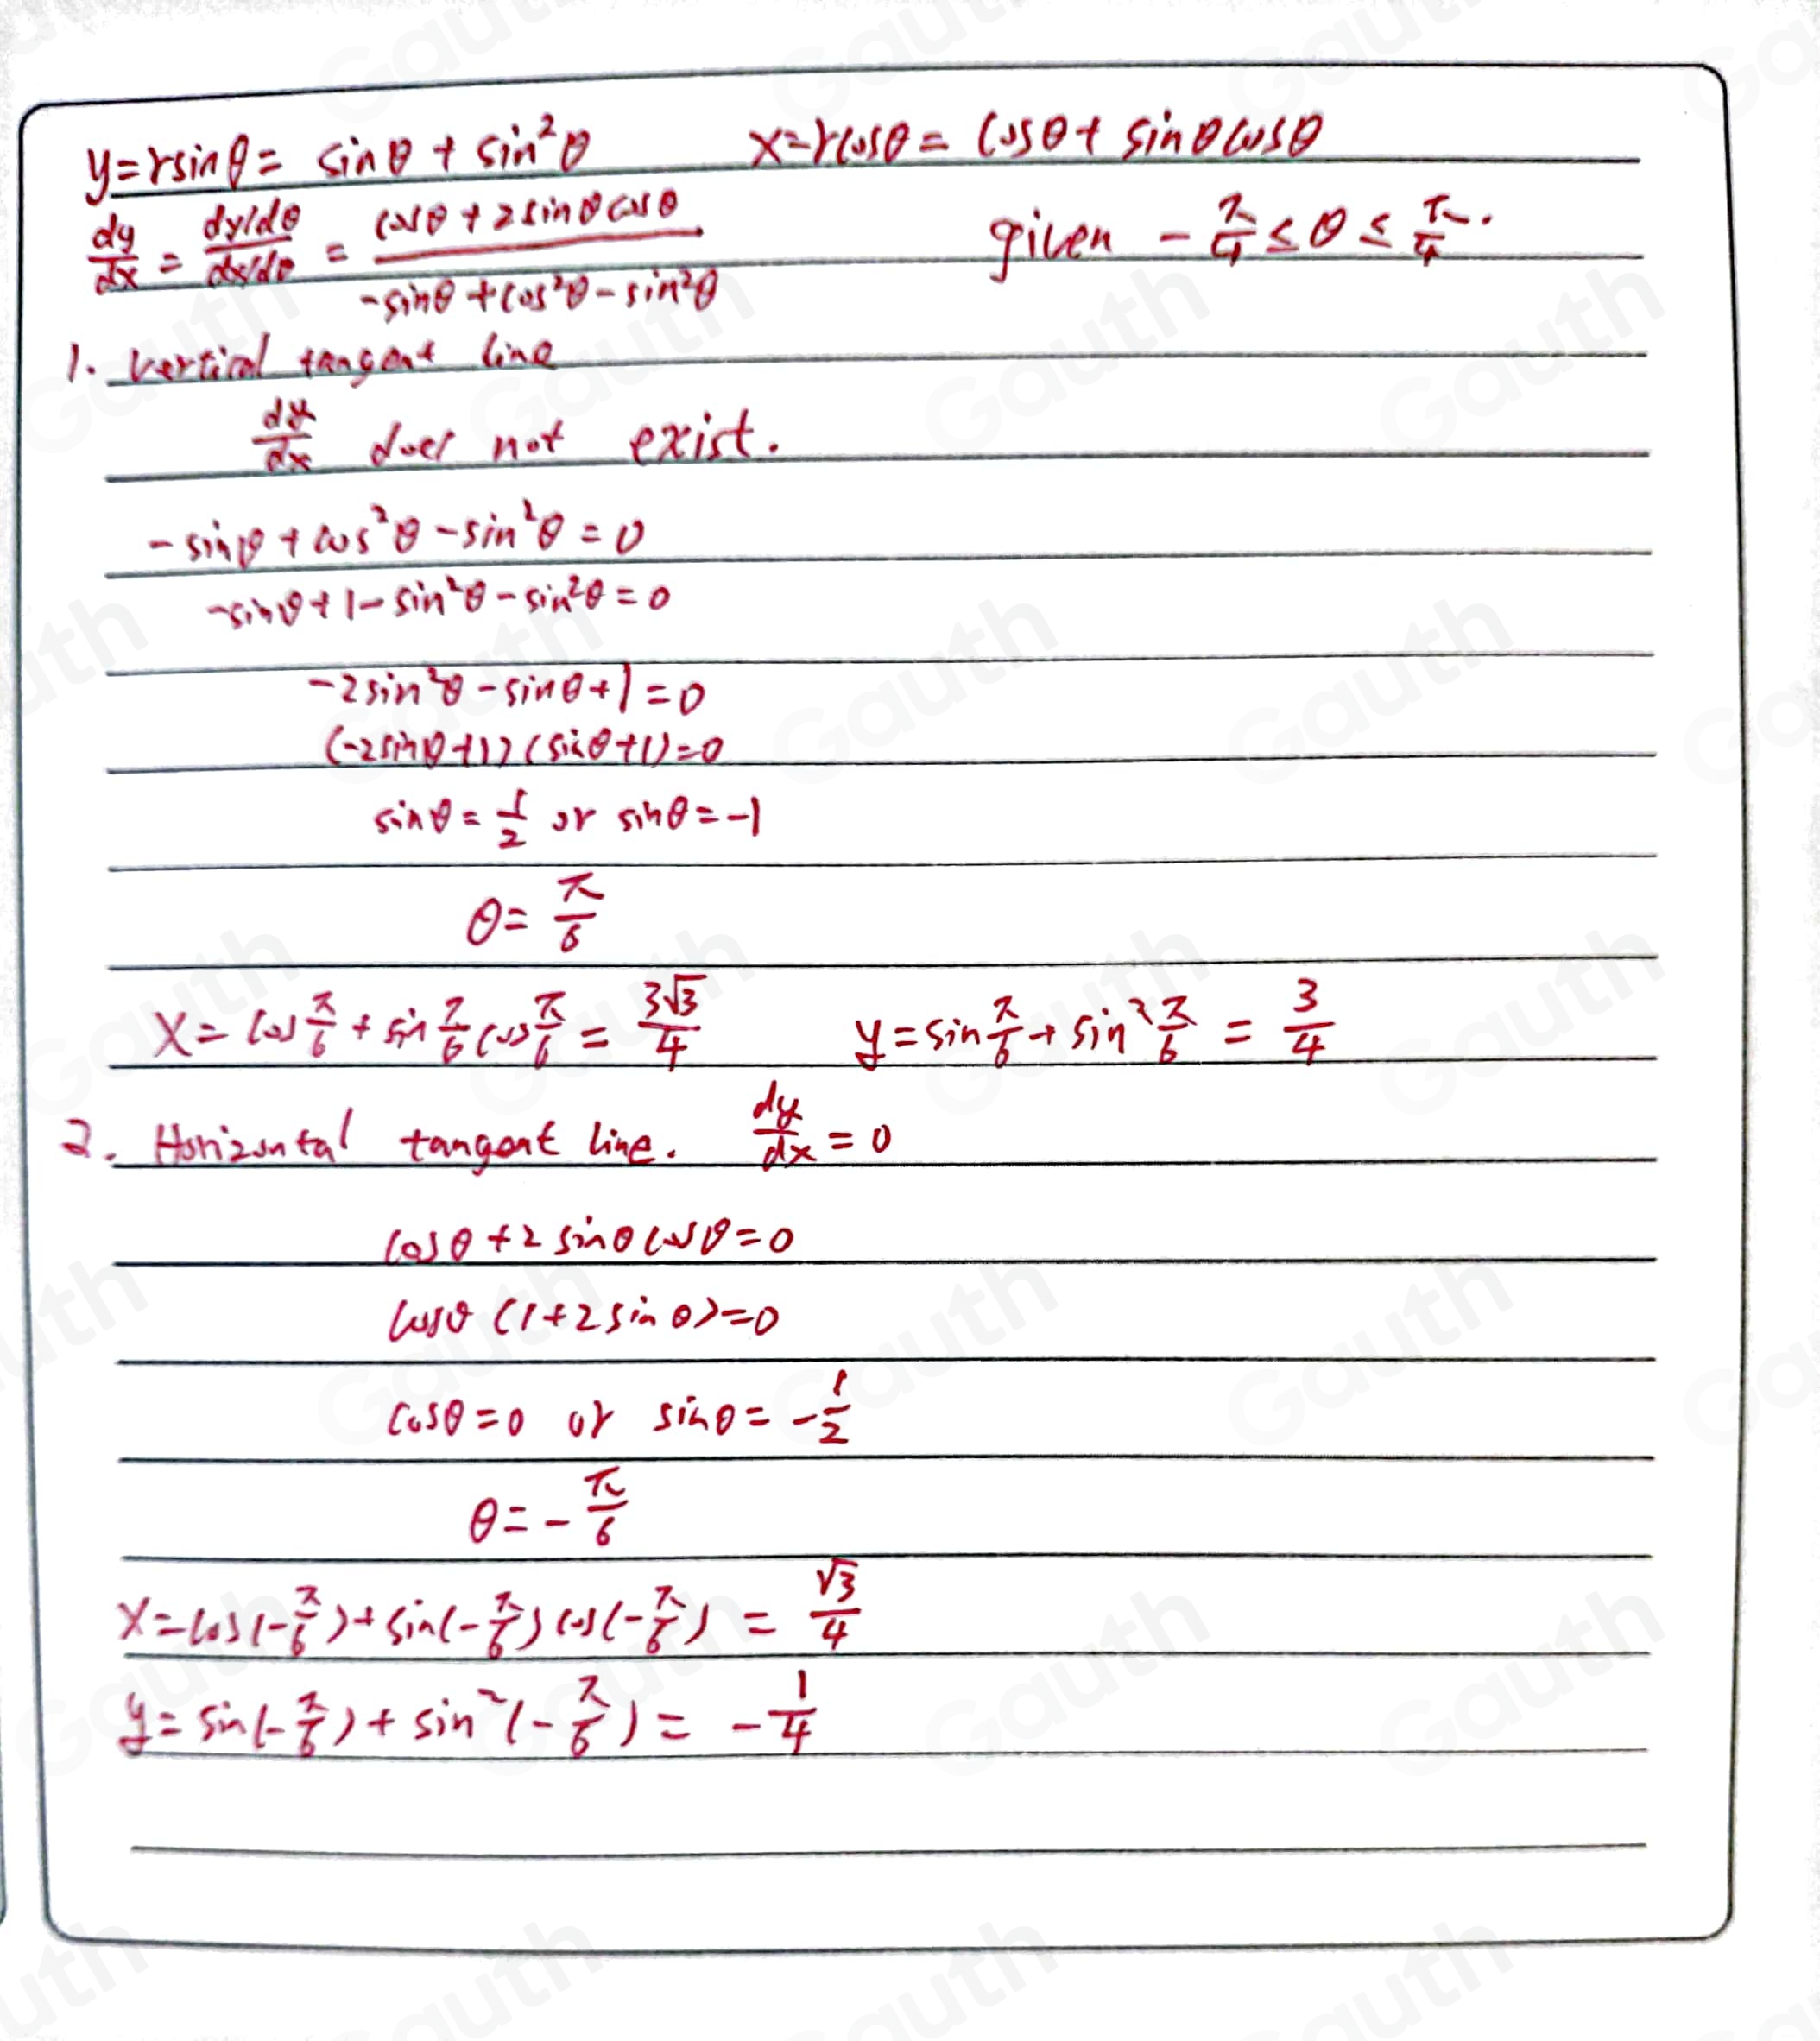 y=rsinθ= sinθ + sin²θ x=rcosθ= cosθ+ sinθcosθ
dy/dx = (dy/dθ)/(dx/dθ) = (cosθ+2sinθcosθ)/(-sinθ+cos²θ-sin²θ) given -π/4 ≤ θ ≤ π/4.
1. vertical tangent line
dy/dx does not exist.
-sinθ+cos²θ-sin²θ=0
-sinθ+1-sin²θ-sin²θ=0
-2sin²θ-sinθ+1=0
(-2sinθ+1)(sinθ+1)=0
sinθ=1/2 or sinθ=-1
θ=π/6
x=cosπ/6+sinπ/6cosπ/6=3√3/4 y=sinπ/6+sin²π/6=3/4
2. Horizontal tangent line. dy/dx=0
cosθ+2sinθcosθ=0
cosθ(1+2sinθ)=0
cosθ=0 or sinθ=-1/2
θ=-π/6
x=cos(-π/6)+sin(-π/6)cos(-π/6)=√3/4
y=sin(-π/6)+sin²(-π/6)=-1/4
Gauth